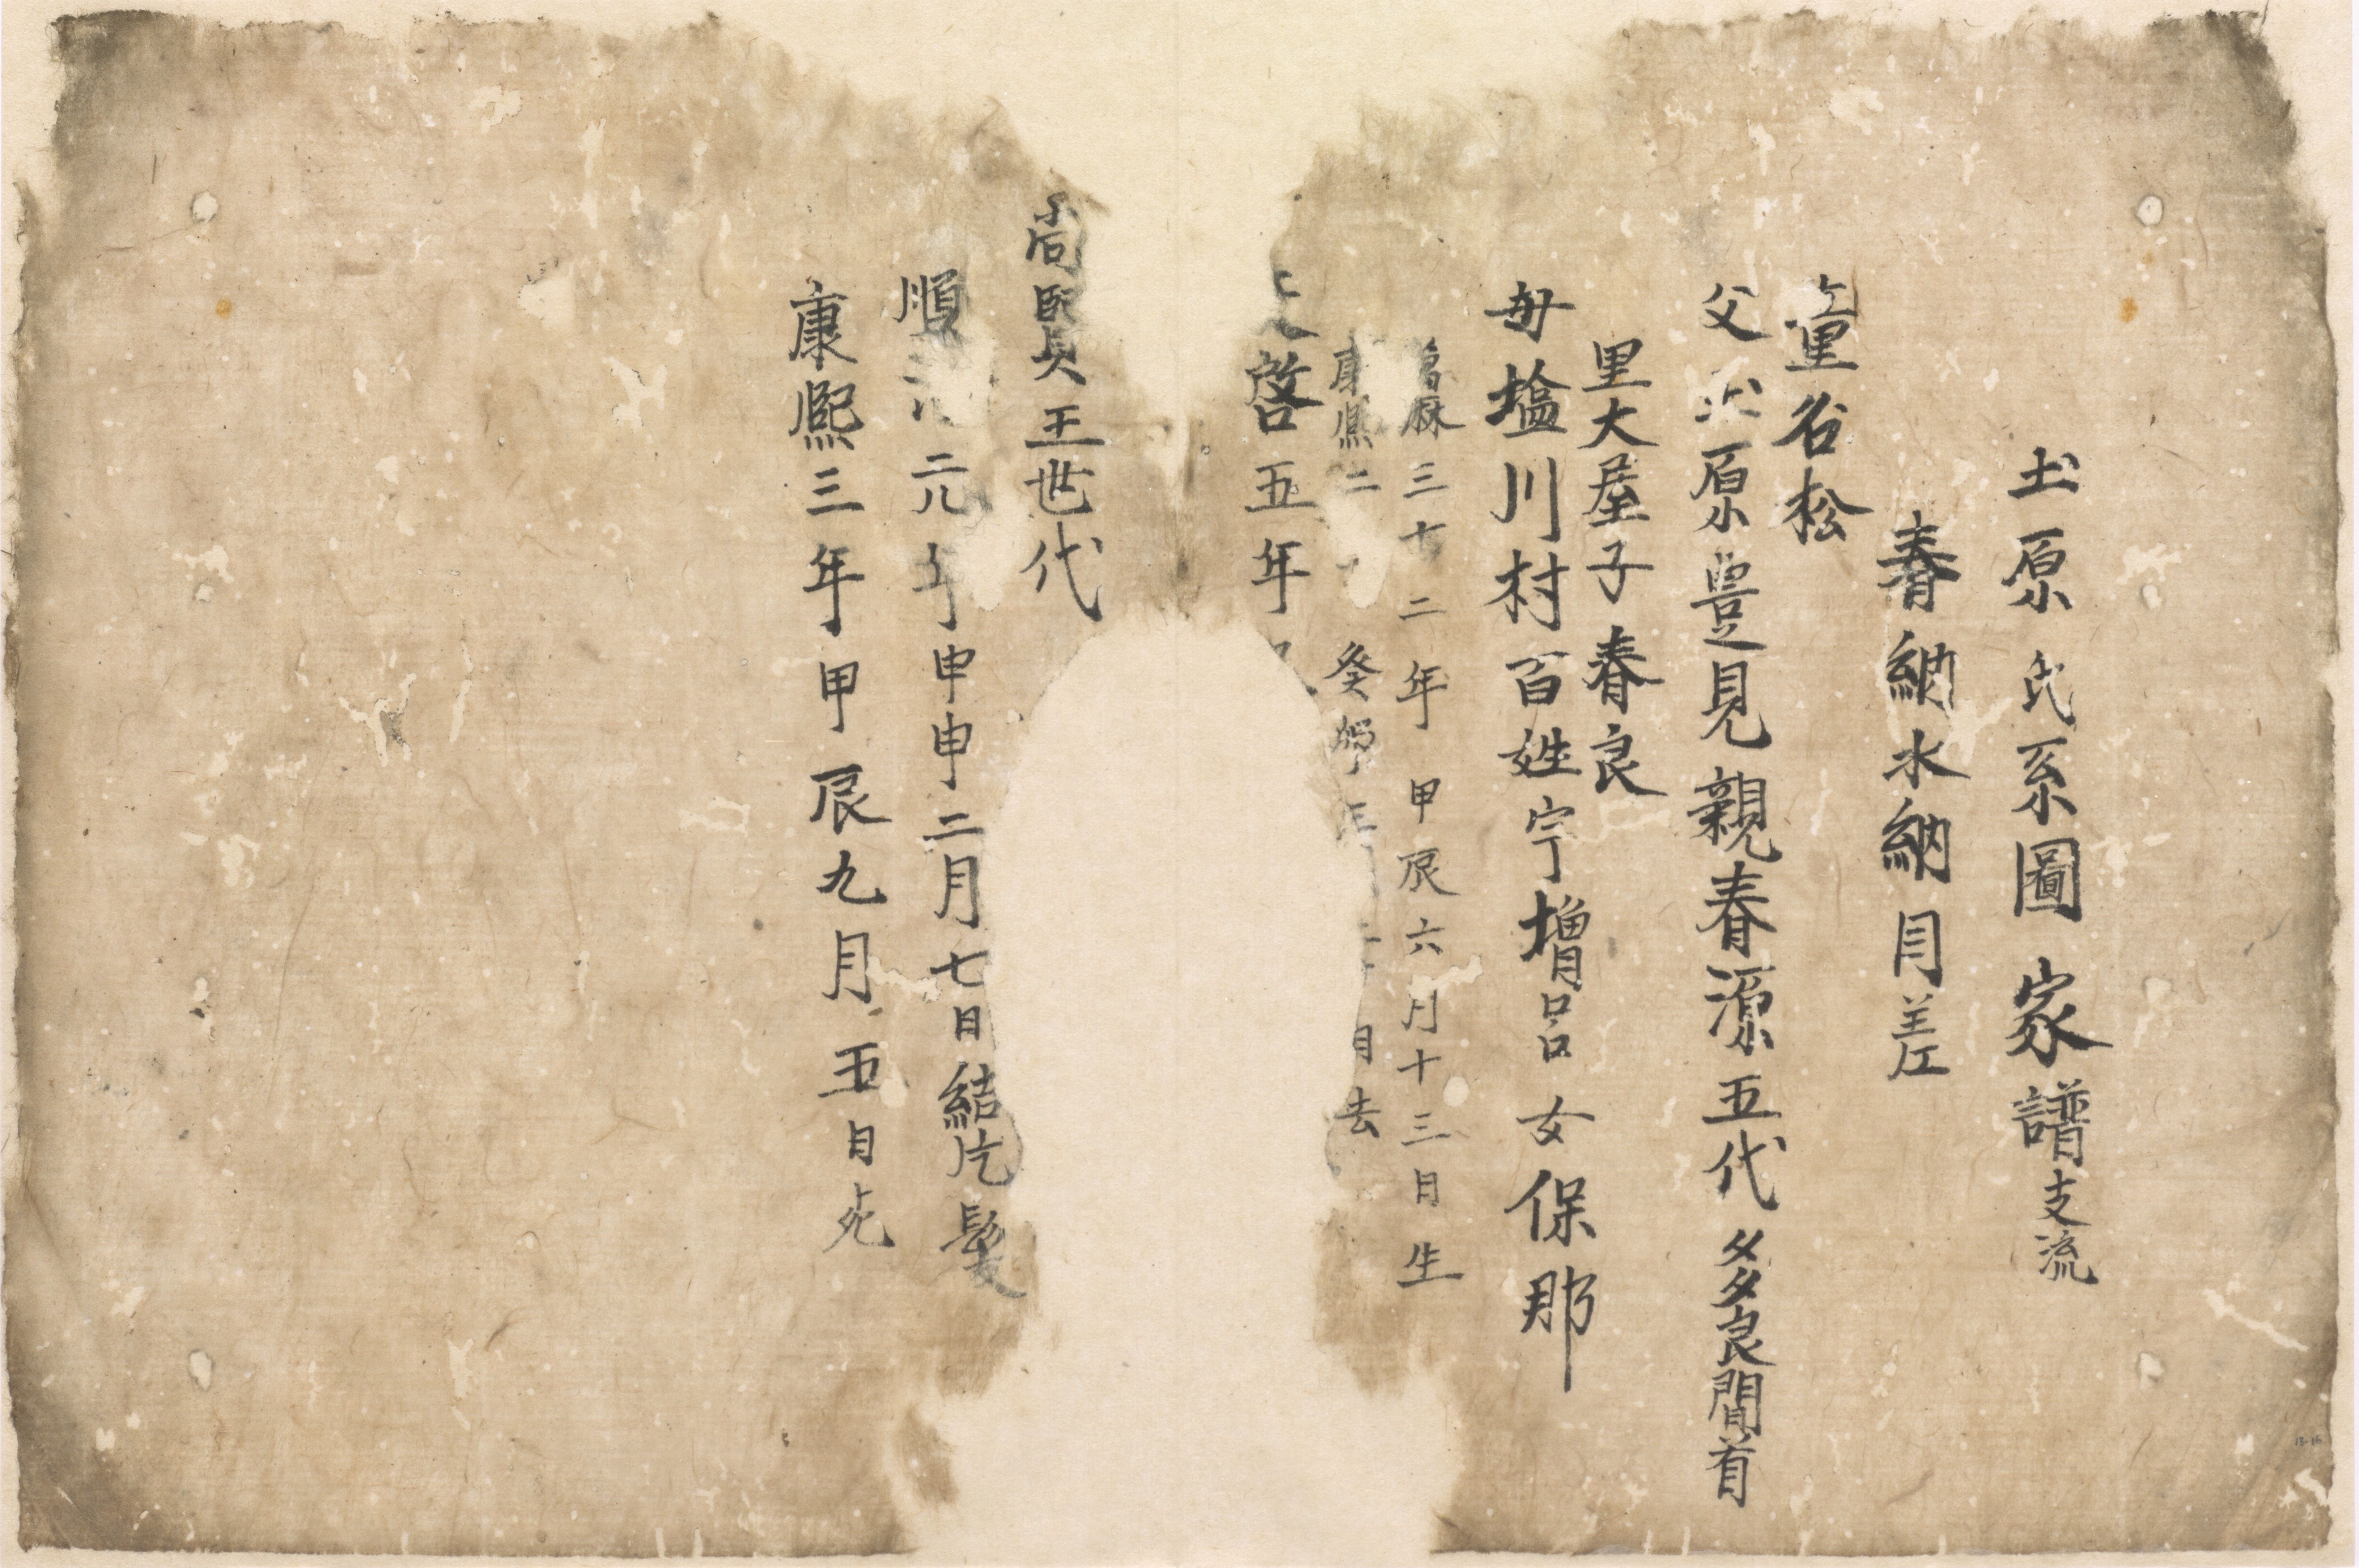 土原氏系圖家譜支流
春納水納目差
童名松
父土原豊見親春源五代多良間首
里大屋子春良
母塩川村百姓宇増呂女保那
萬厤三十二年甲辰六月十三日生
康熙二 癸卯年 月 日去
天啓五年
尚賢王世代
順治元年申申二月七日結片髮
康熙三年甲辰九月五日死